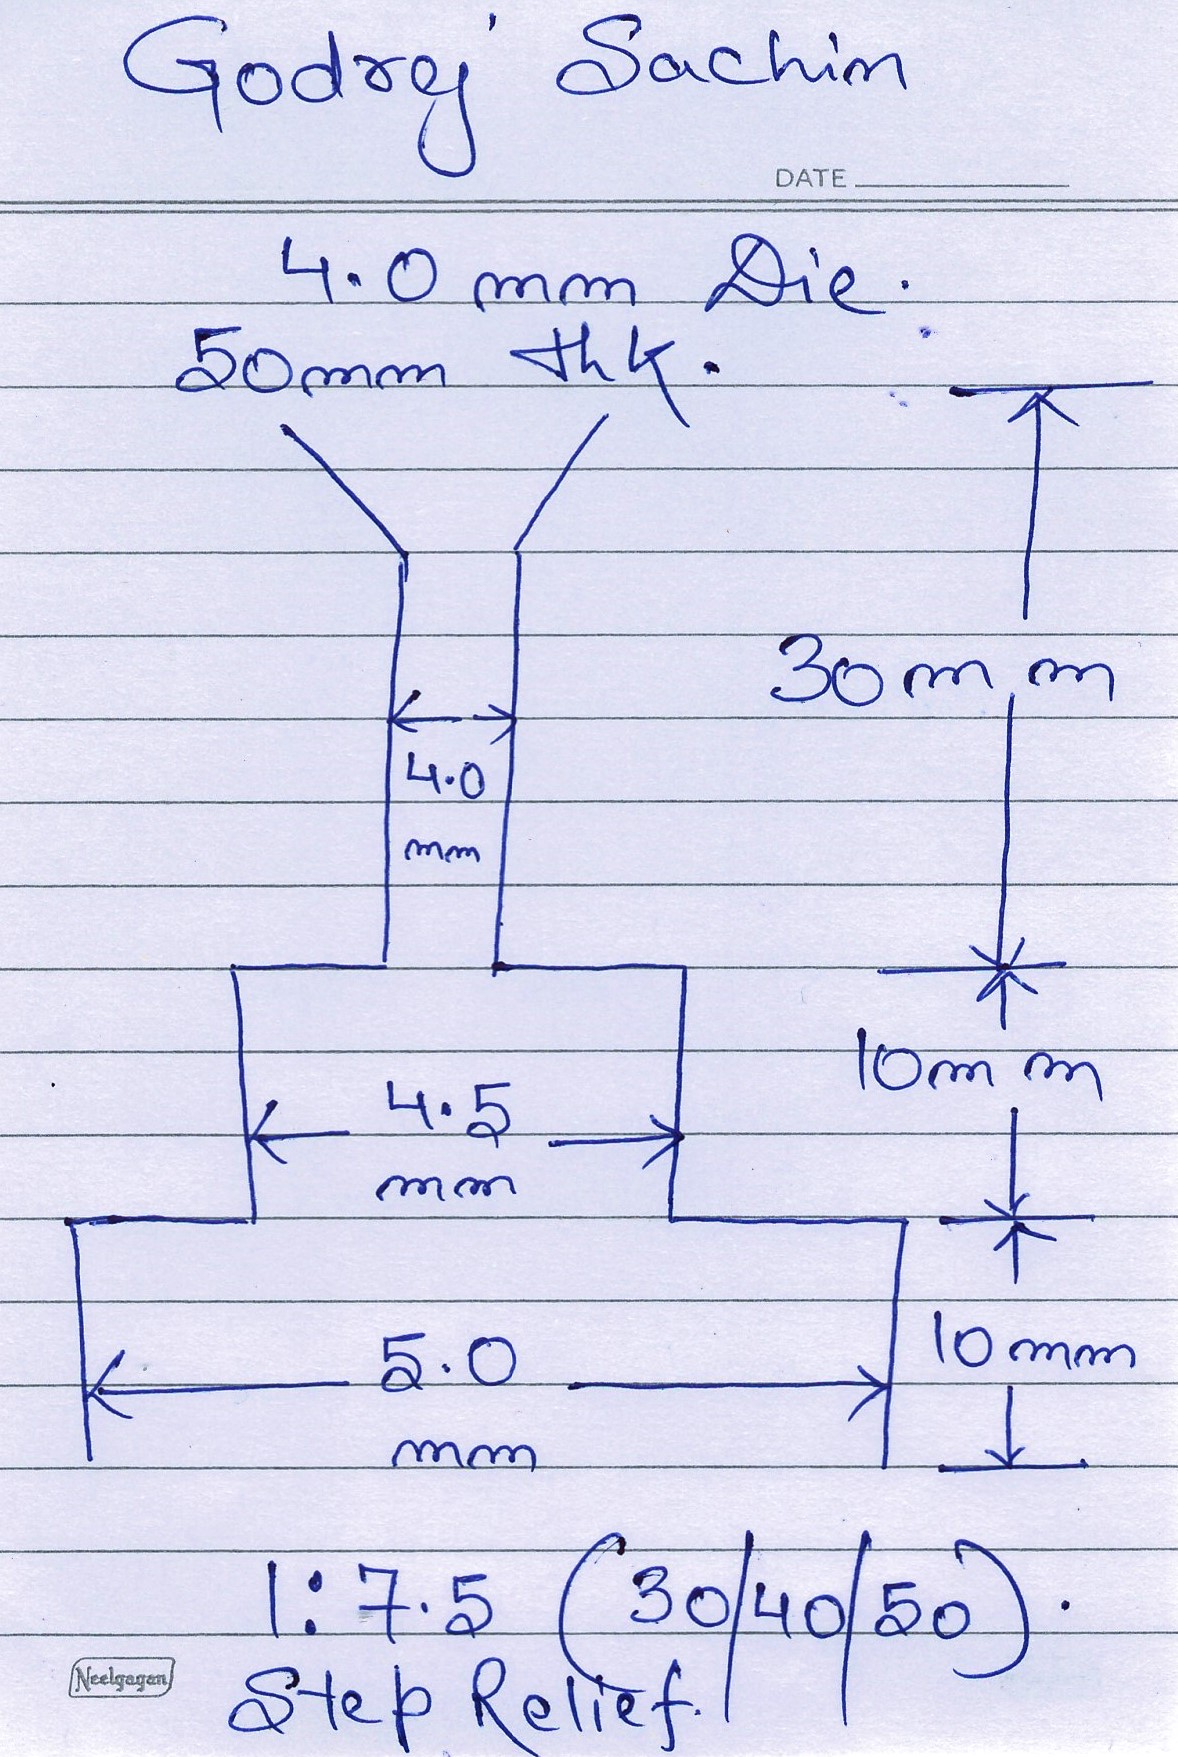 Godrej Sachin
DATE
4.0 mm Die.
50mm thk.
30mm
4.0
mm
10mm
4.5
mm
10mm
5.0
mm
1:7.5 (30/40/50).
Step Relief.
Neelgagan